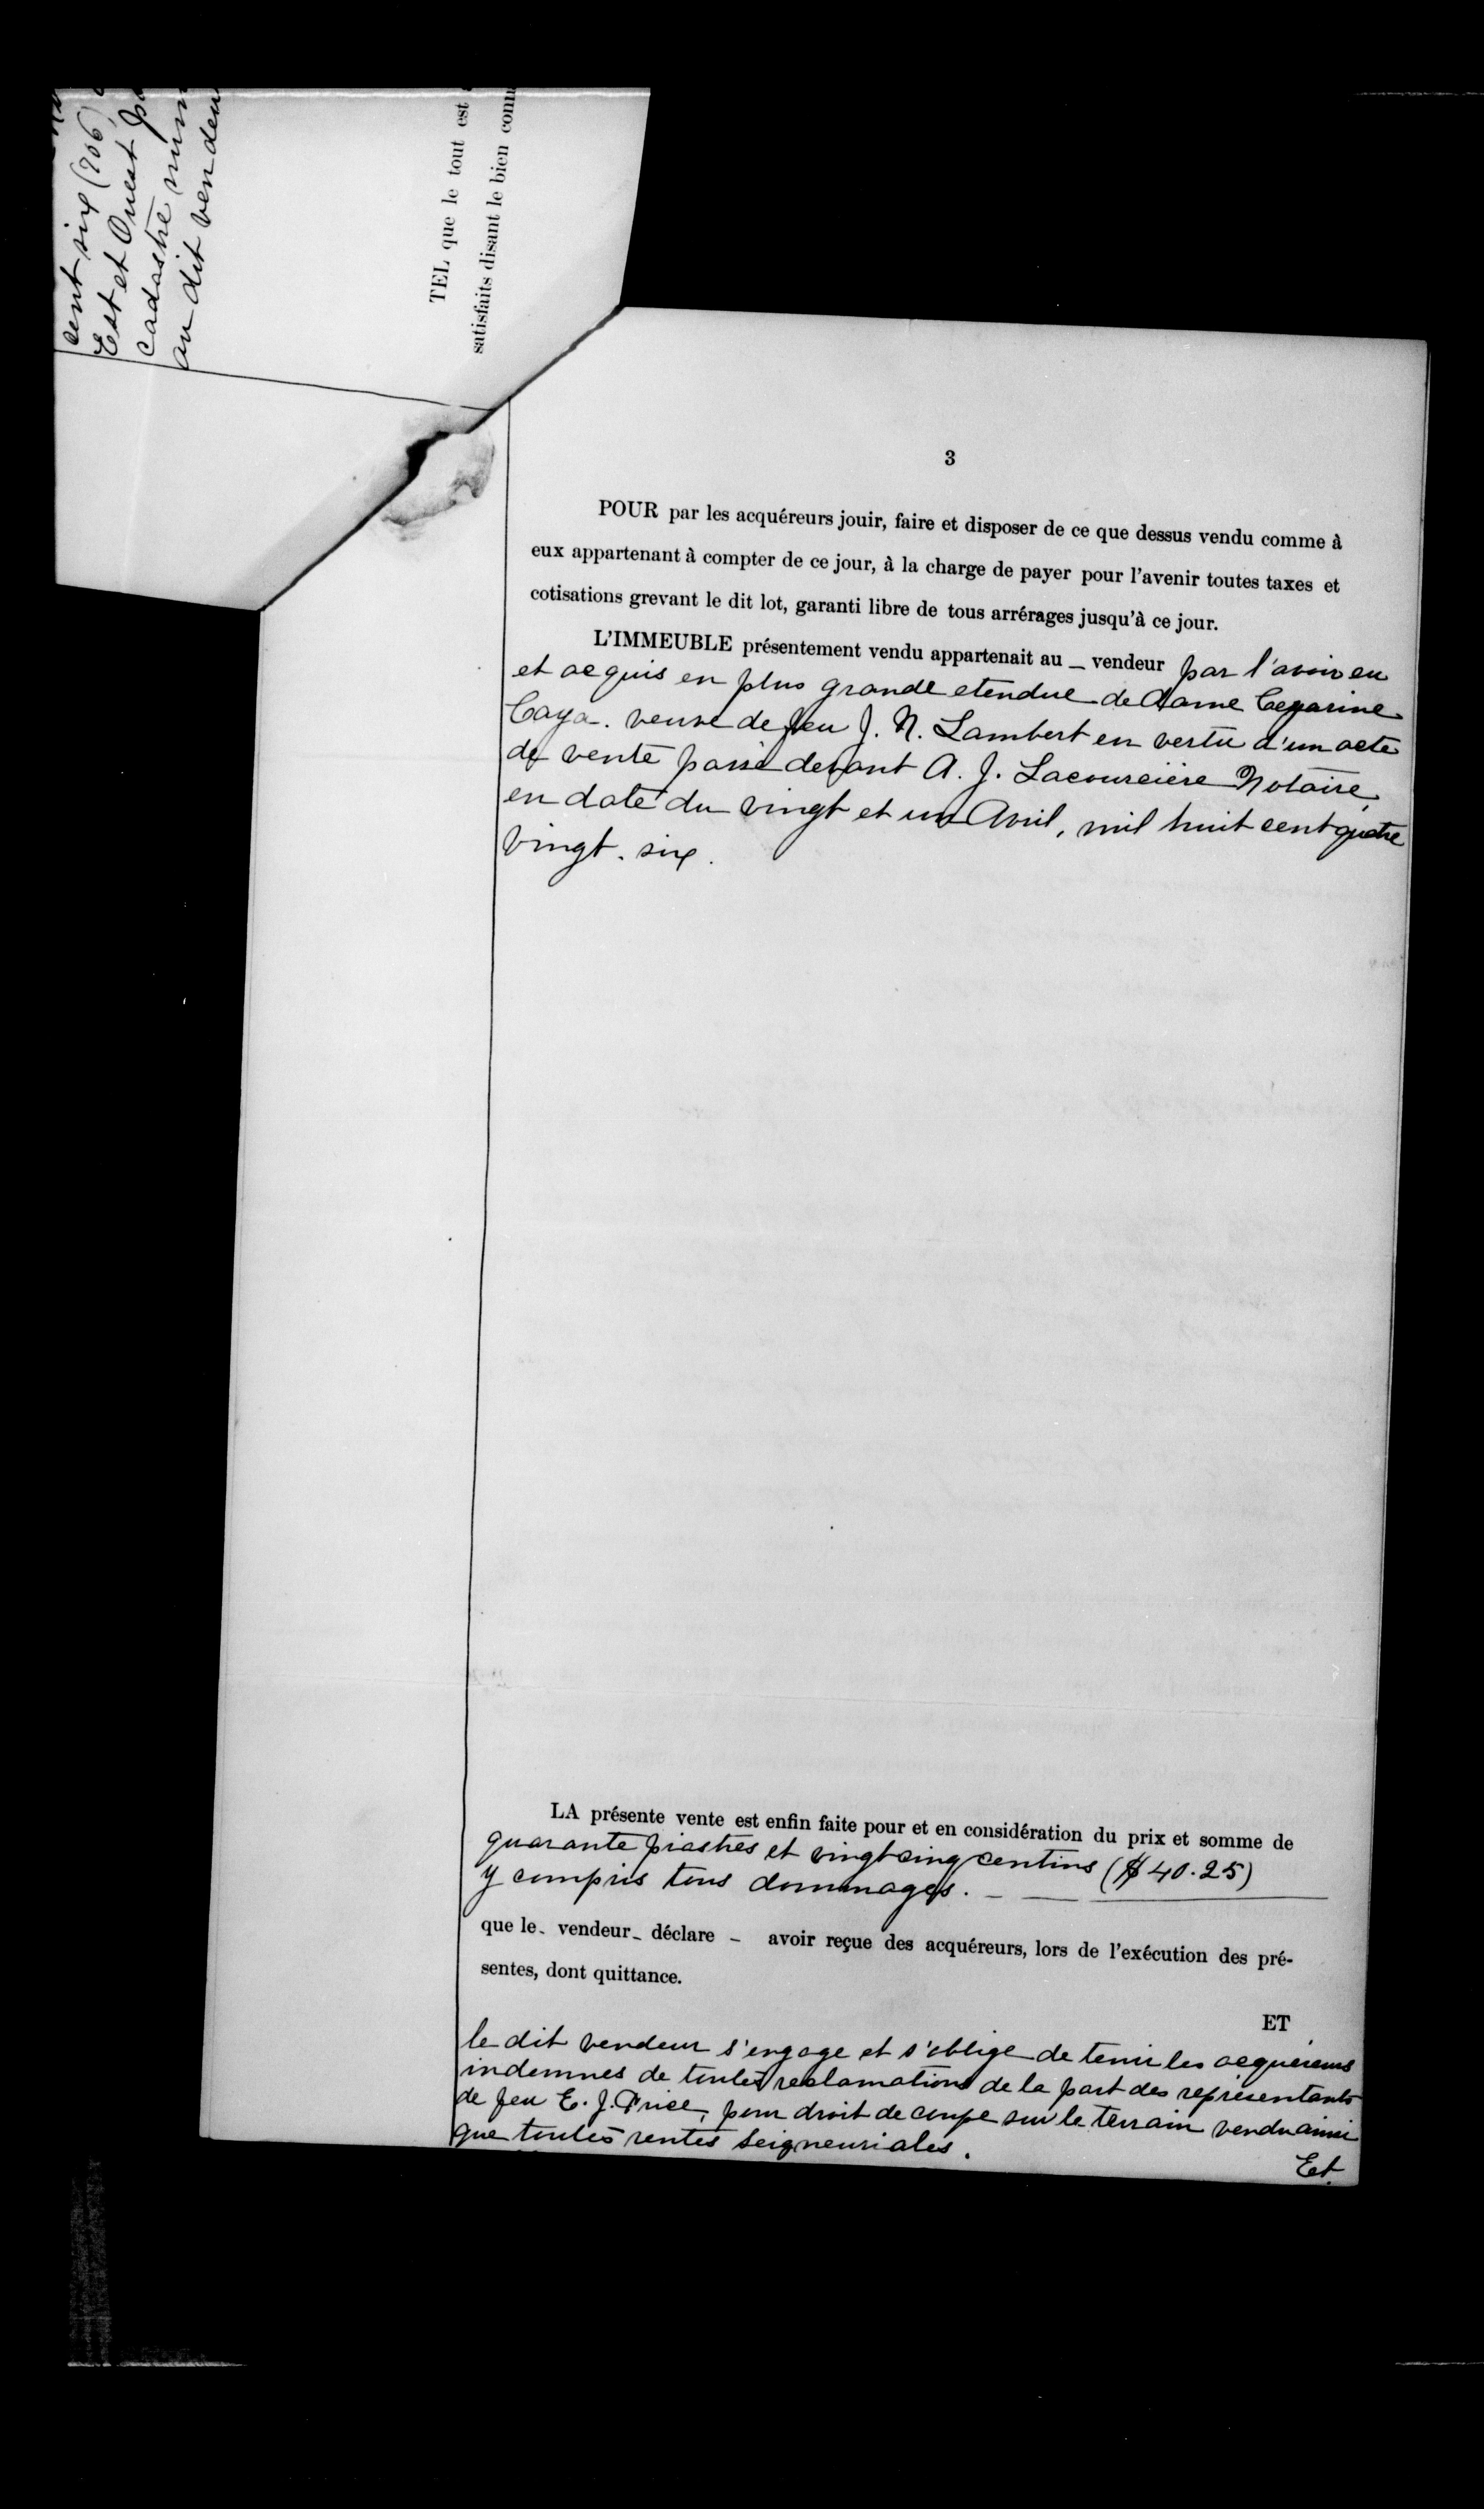 cent six (206)
Est et Ouest
cadastre
au dit vendeur
TEL que le tout est
satisfaits disant le bien
3
POUR par les acquéreurs jouir, faire et disposer de ce que dessus vendu comme à
eux appartenant à compter de ce jour, à la charge de payer pour l'avenir toutes taxes et
cotisations grevant le dit lot, garanti libre de tous arrérages jusqu'à ce jour.
L'IMMEUBLE présentement vendu appartenait au _ vendeur par l'avoir eu
et acquis en plus grande etendue de Dame Cezarine
Caya. veuve de feu J. N. Lambert en vertu d'un acte
de vente passé devant A. J. Lacourcière Notaire,
en date du vingt et un Avril, mil huit cent quatre
vingt. six.
LA présente vente est enfin faite pour et en considération du prix et somme de
quarante piastres et vingt cinq centins ($ 40.25)
y compris tous dommages. _ __
que le_ vendeur_ déclare _ avoir reçue des acquéreurs, lors de l'exécution des pré-
sentes, dont quittance.
ET
le dit vendeur s'engage et s'oblige de tenir les acquéreurs
indemnes de toutes reclamations de la part des représentants
de feu E. J. Price, pour droit de coupe sur le terrain vendu ainsi
que toutes rentes Seigneuriales.
Et.